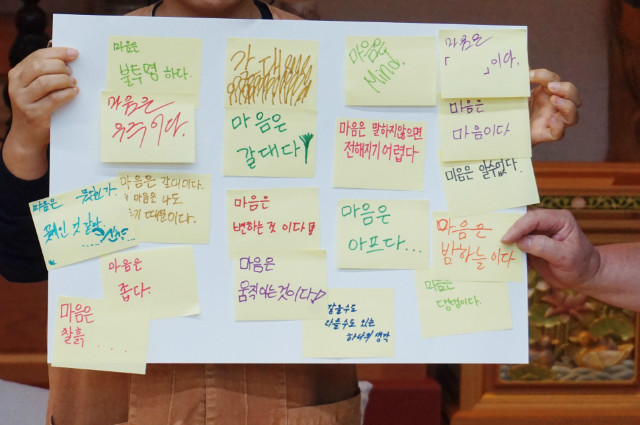 마음은
불투명 하다.
갈대
마음은
Mind.
마음은
「 」이다.
마음은
우주이다.
마음은
갈대다
마음은 말하지않으면
전해지기 어렵다
마음은
마음이다
마음은 알수없다.
마음은 무엇인가.
마음은 갈대이다.
마음은 나도
때문이다.
마음은
변하는 것 이다
마음은
아프다...
마음은
밤하늘이다
마음은
좁다.
마음은
움직이는것이다
마음은
마음은
찰흙
....
같을수도
다를수도 있는
하나의 생각